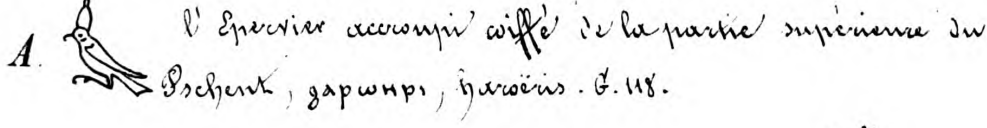 A. l'Epervier accroupi coiffé de la partie supérieure du
Pschent, ϩⲁⲣⲱⲏⲣⲓ, haroëris. G. 118.